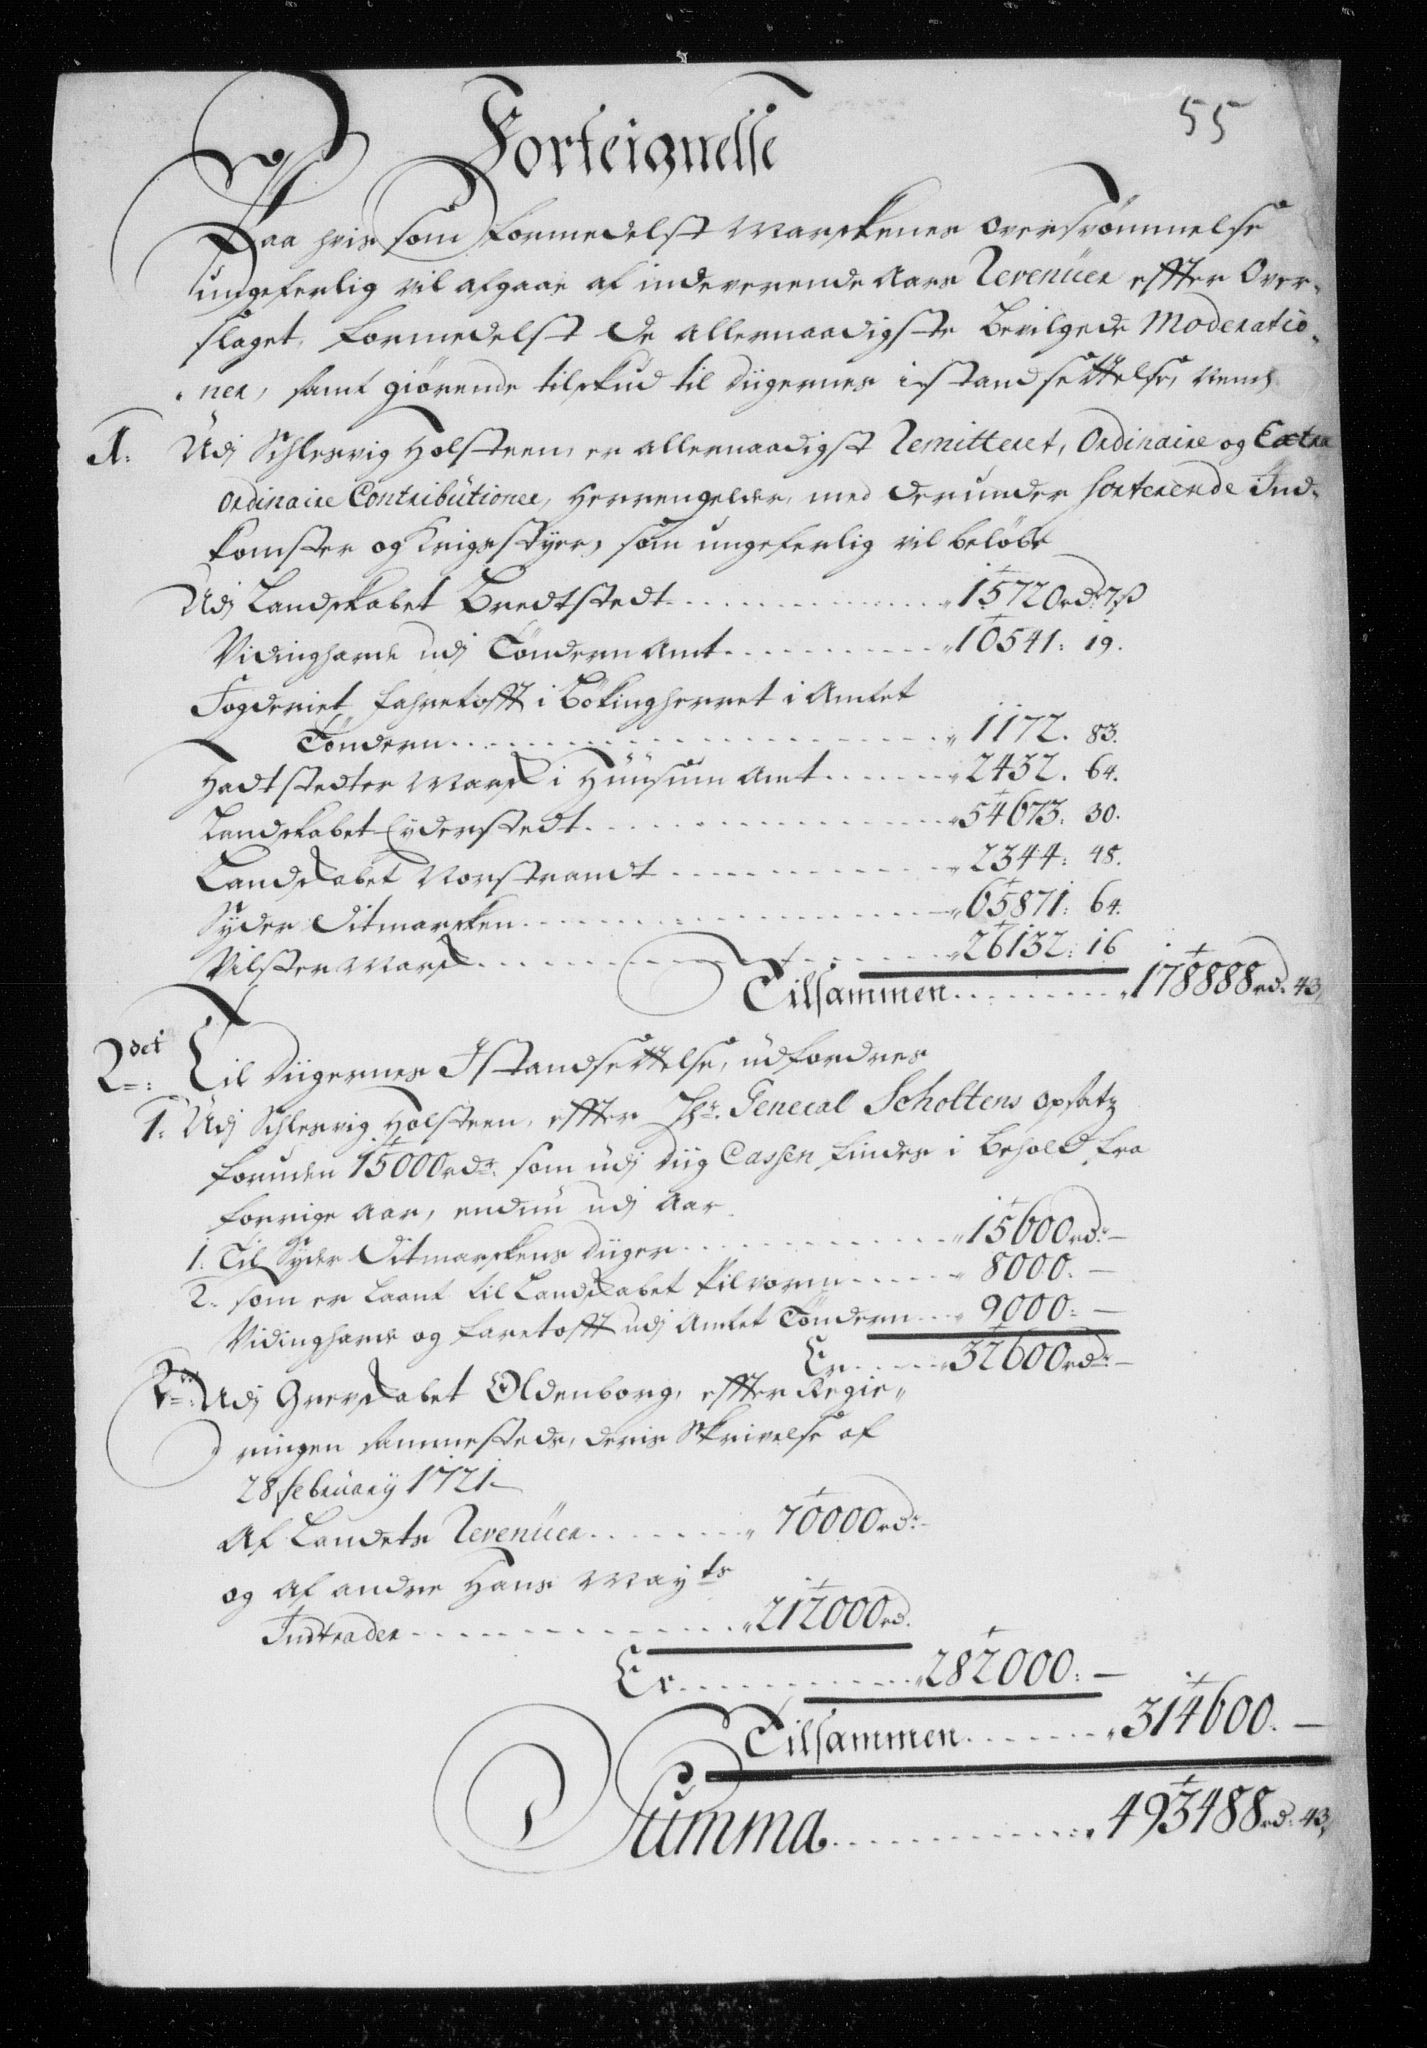 55
Forteignelse
Paa hvis som formedelst Marskenes Oversvömmelse
ungeferlig vil afgaae af indeverende Aars Revenüer effter Over-
slaget, formedelst de allernaadigste bevilgede Moderatio-
ner, samt giörende tilskud til diigernes istandsettelse, Neml:
1. Udj Schlesvig Holsteen, er allernaadigst Remitteret, Ordinaire og Extra
Ordinaire Contribütioner, Herrengelder, med derunder sorterende Ind-
komster og Krigsstyer, som ungeferlig vil belöbe
Udj Landskabet Bredtstedt . . . 15720 rdr 7 ß
Vidingharde udj Töndern Amt . . . 10541: 19.
Fogderiet Fahretofft i Bökingherret i Amtet
Töndern . . . 1172. 83.
Hadtstedter Marsk i Hüüsum Amt . . . 2432. 64.
Landskabet Eyderstedt . . . 54673: 30.
Landskabet Norstrandt . . . 2344: 48.
Syder Ditmarsken . . . 65871: 64.
Vilster Marsk . . . 26132: 16
Tilsammen . . . 178888 rd. 43
2det Til diigernes Istandsettelse, udfordres
1. Udj Schlesvig Holsteen, effter Hr. General Scholtens opsatz
foruden 15000 rdr. som udj diig Cassen findes i behold fra
forrige Aar, endnu udj Aar
1. Til Syder Ditmarskens diiger . . . 15600 rdr. —
2. som er laant til Landskabet 8000. —
Vidingharde og Faretofft udj Amtet Töndern . . . 9000. —
Er . . . 32600 rdr. —
2. Udj Grevskabet Oldenborg, effter Regie-
ringen sammesteds, deris Skrivelse af
28 february 1721.
Af Landets Revenüer . . . 70000 rdr. —
og af andre Hans Mayts
Indtrader . . . 212000 rd.
Er . . . 282000. —
Tilsammen . . . 314600. —
Summa . . . 493488 rd. 43